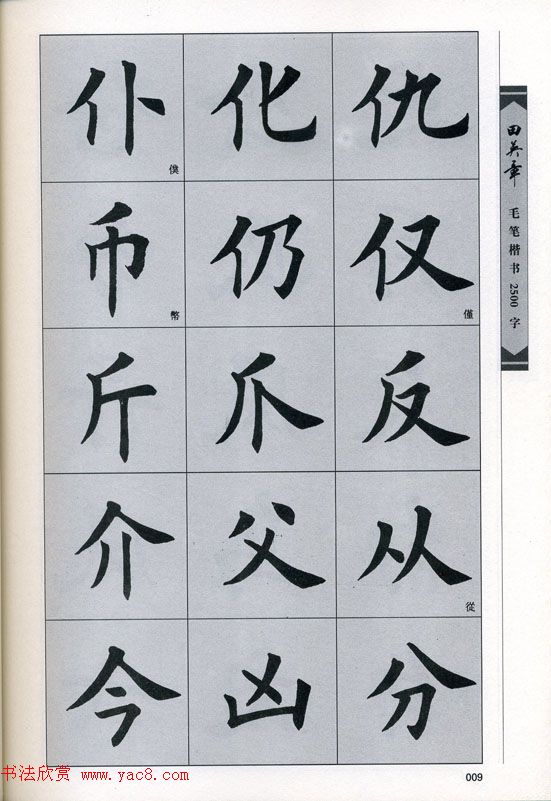 仆 化 仇
僕
币 仍 仅
幣 僅
斤 爪 反
介 父 从
從
今 凶 分
田英章
毛笔楷书2500字
书法欣赏 www.yac8.com
009